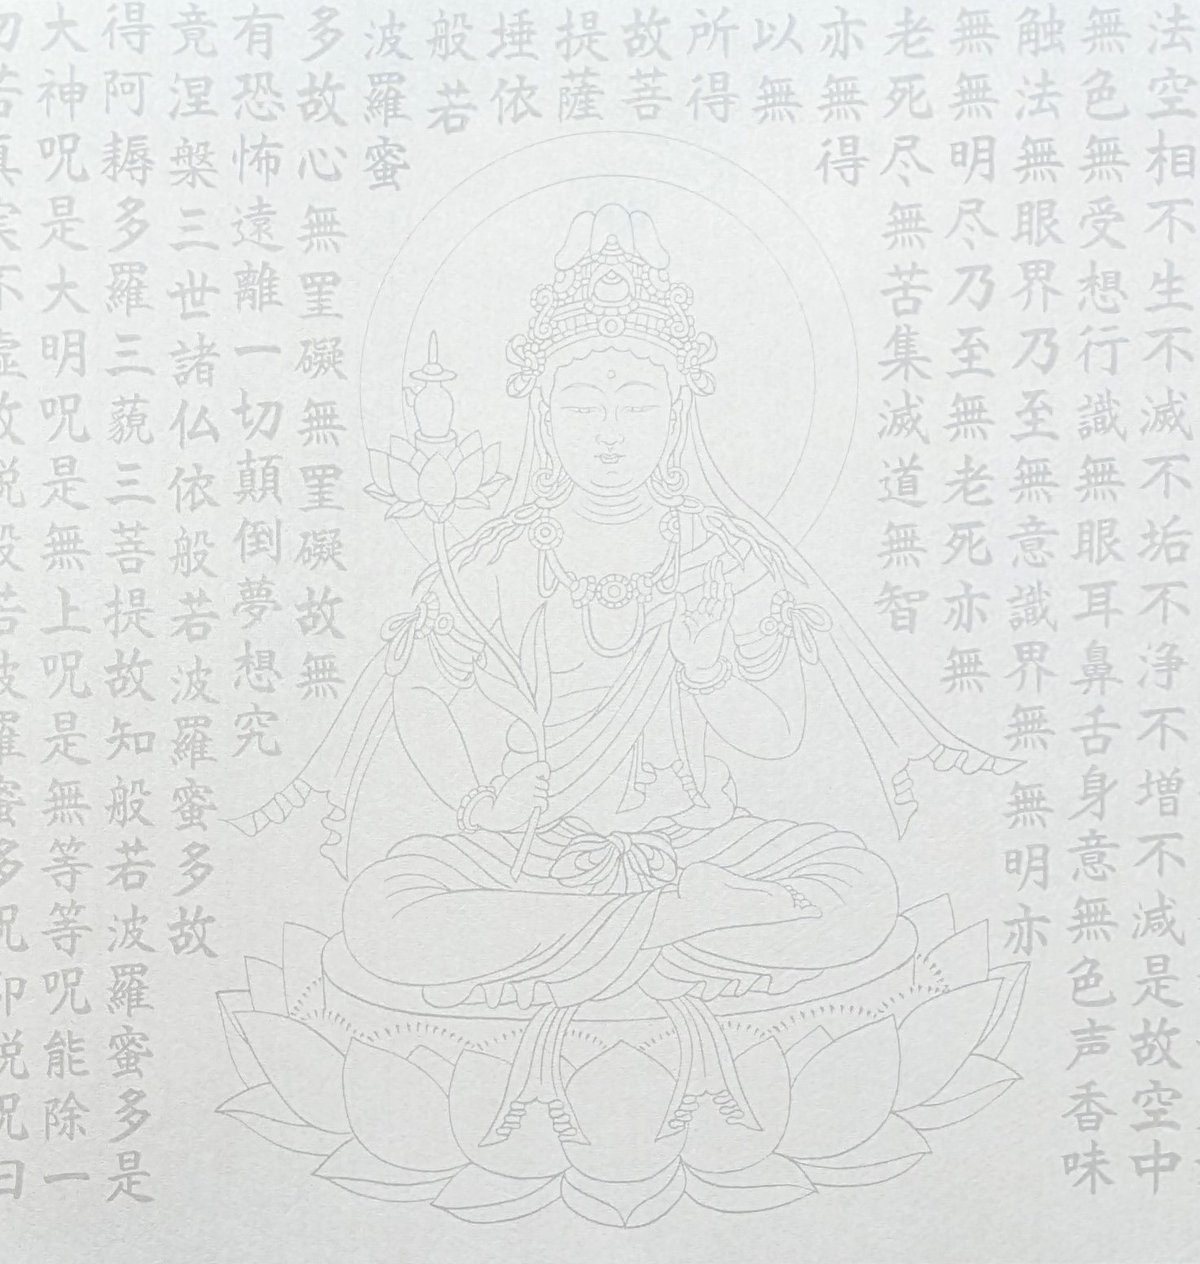 法空相不生不滅不垢不浄不増不減是故空中
無色無受想行識無眼耳鼻舌身意無色声香味
触法無眼界乃至無意識界無無明亦
無無明尽乃至無老死亦無
老死尽無苦集滅道無智
亦無得
以無
所得
故菩
提薩
埵依
般若
波羅蜜
多故心無罣礙無罣礙故無
有恐怖遠離一切顛倒夢想究
竟涅槃三世諸仏依般若波羅蜜多故
得阿耨多羅三藐三菩提故知般若波羅蜜多是
大神呪是大明呪是無上呪是無等等呪能除一
切苦真実不虚故説般若波羅蜜多呪即説呪曰